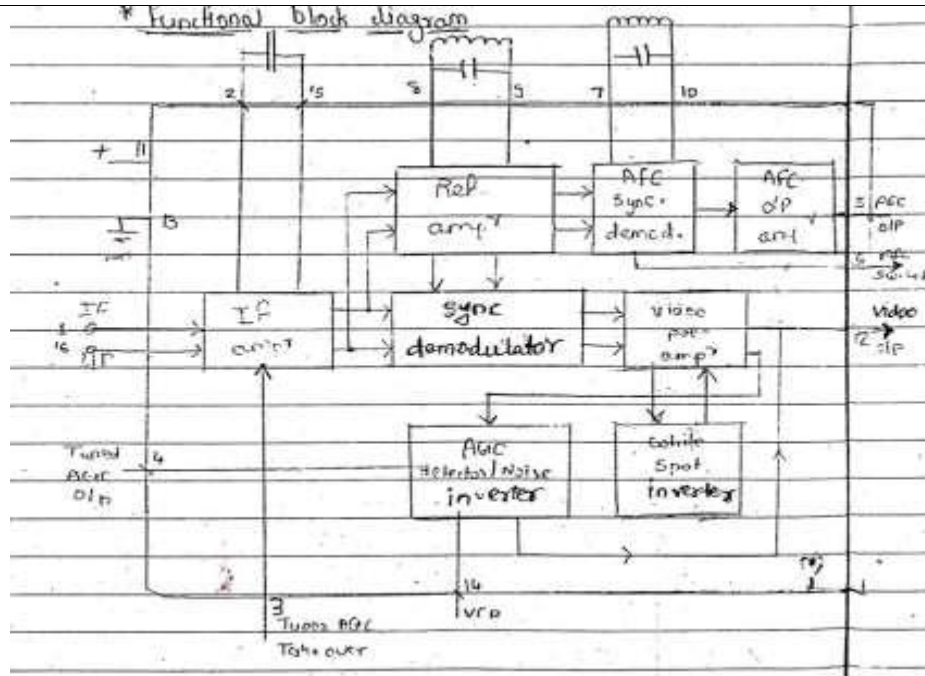 * Functional block diagram
2
15
8
9
7
10
+
11
13
Ref
ampr
AFC
sync.
demod.
AFC
o/p
5
AFC
o/p
6
IF
1
16
I/P
IF
ampr
sync
demodulator
video
pre
ampr
Video
12
o/p
Tuner
AGC
O/P
4
AGC
detector/Noise
inverter
white
spot
inverter
3
Tuner AGC
Takeover
14
VCR